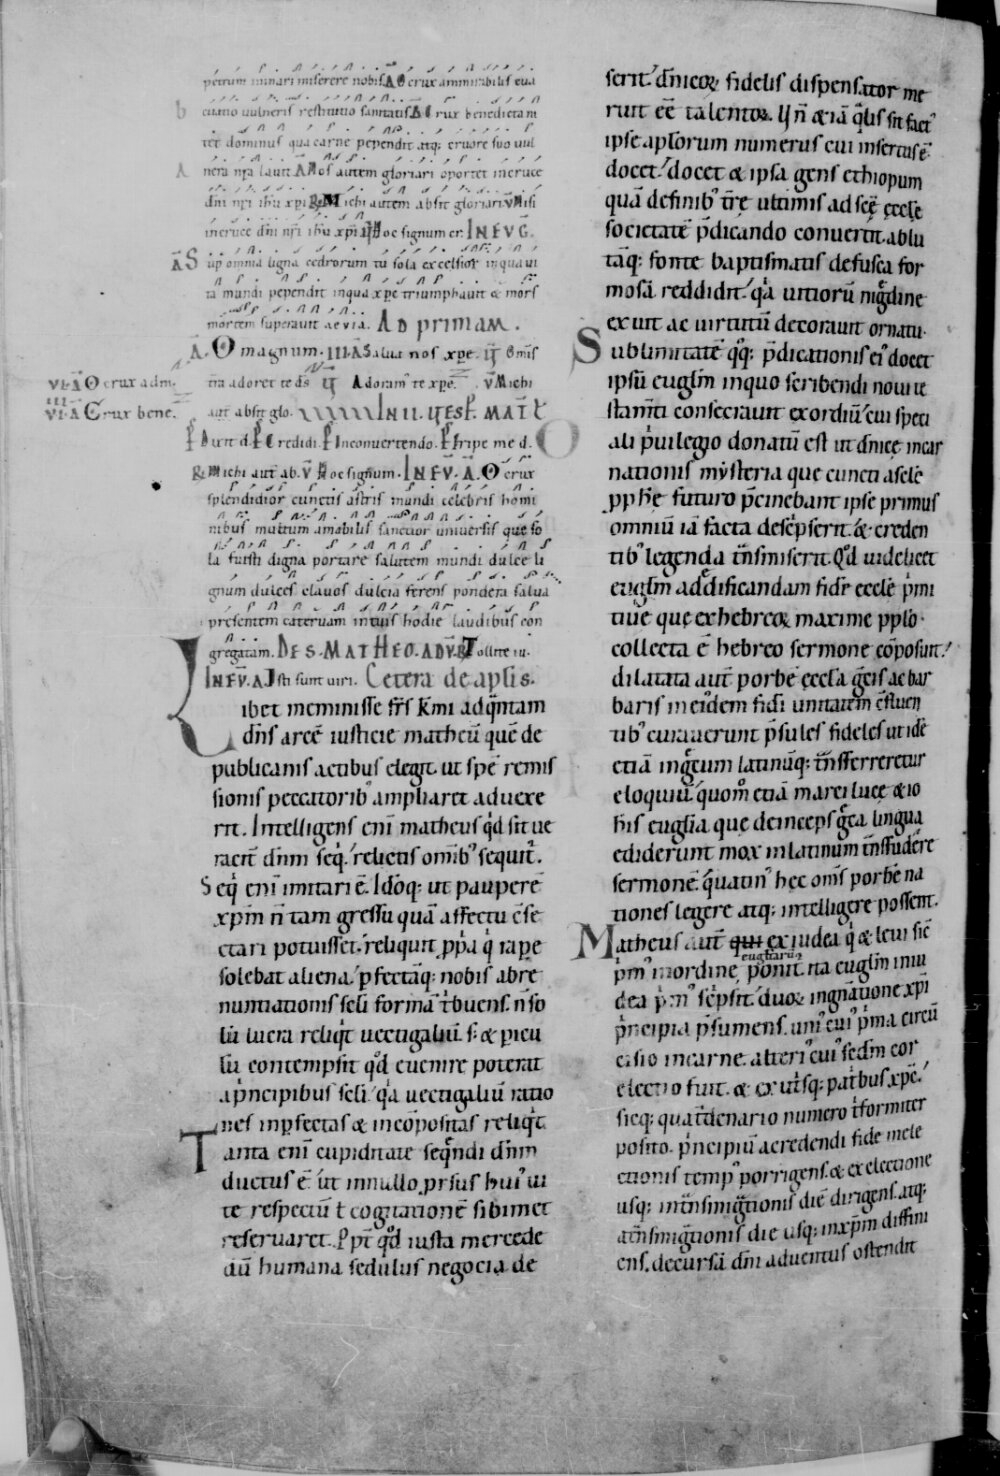 petrum ininari miserere nobis. A. O crux ammirabilis eua
cuatio uulneris restitutio sanitatis A C rux benedicta in
b
A
tet dominus qua carne pependit atq; cruore suo uul
nera nr̃a lauit. A. Nos autem gloriari oportet in cruce
dñi nr̃i ihu xpi. R Michi autem absit gloriari. V Nisi
in cruce dñi nr̃i ihu xpi. Hoc signum cr. IN EVG.
A S up omnia ligna cedrorum tu sola excelsior inqua ui
ta mundi pependit inqua xp̃e triumphauit & mors
mortem superauit aeuia. AD primam.
A. O magnum. III. A Salua nos xp̃e. Omĩs
VI. A O crux adm.
t̃ra adoret te dš Adoram' te xp̃e. V Michi
VI. A Crux bene.
aut absit glo. IN II. VESP. MAT
P Dixit d. P Credidi. P Inconuertendo. P Eripe me d.
R Michi aut ab. V Hoc signum. IN EV. A. O crux
splendidior cunctis astris mundi celebris homi
nibus multum amabilis sanctior uniuersis que so
la fuisti digna portare talentum mundi dulce li
gnum dulces clauos dulcia ferens pondera salua
presentem cateruam in tuis hodie laudibus con
gregatam. DE S. MATHEO. AD V. R Tollite iu.
IN EV. A Isti sunt uiri. Cetera de apl̃is.
L ibet meminisse fr̃s k̃mi ad q̃ntam
dñs arcẽ iusticie matheũ quẽ de
publicanis actibus elegit. ut spẽ remis
sionis peccatorib' ampliaret aduexe
rit. Intelligens enĩ matheus q̇d sit ue
racit̃ dñm seq̇. relictis omĩb' sequit̃.
Seq̇ enĩ imitari ẽ. Idoq; ut pauperẽ
xp̃m ñ tam gressu quã affectu c̃se
ctari potuisset. reliquit ppã q̇ rapẽ
solebat aliena. p̃fectãq; nobis abre
nuntiationis seli formã t̃buens. ñ so
lũ lucra reliq̇t uectigaliũ. s; & picu
lũ contempsit q̇d euenire poterat
a ṗncipibus seli. q̇a uectigaliũ ratio
nes inp̃fectas & incõpositas reliq̇t.
Tanta enĩ cupiditate seq̃ndi dñm
ductus ẽ. ut in nullo prsus hui' ui
te respectũ ł cogitationẽ sibimet
reseruaret. Ppt̃ q̇d iusta mercede
dũ humana sedulus negocia de
serit. dñicoꝝ fidelis dispensator me
ruit eẽ talentoꝝ. Hñ & iã q̃lis sit fact'
ipse aplorum numerus cui insertus ẽ
docet. docet & ipsa gens ethiopum
quã de finib' t̃re ultimis ad scẽ ecclẽ
societatẽ p̃dicando conuertit. ablu
tãq; fonte baptismatis de fusca for
mosã reddidit. q̇a uitiorũ nig̃dine
exuit ac uirtutũ decorauit ornatu.
Sublimitatẽ q̇q; p̃dicationis ei' docet
ipsũ euglm̃ inquo scribendi noui te
stam̃ti consecrauit exordiũ. cui speci
ali ṗuilegio donatũ est ut dñicẽ incar
nationis mysteria que cuncti a sclẽ
pphẽ futuro p̃cinebant ipse primus
omniũ iã facta descp̃serit. & creden
tib' legenda t̃nsmiserit. Q̇d uidelicet
euglm̃ ad edificandam fidẽ ecclẽ ṗmi
tiuẽ que ex hebreoꝝ maxime pplo
collecta ẽ hebreo sermone cõposuit.
dilatata aut̃ p orbẽ eccl̃a g̃cis ac bar
baris in eidem fidi unitatem c̃fluen
tib' curauerunt p̃sules fideles ut idẽ
etiã in g̃cum latinũq; t̃nsferretur
eloquiũ. quom̃ etiã marci lucẽ & io
h̃is euglia. que deinceps g̃ca lingua
ediderunt mox in latinum t̃nsfudẽre
sermonẽ. q̃tin' hec om̃s p orbẽ na
tiones legere atq; intelligere possent.
Matheus aut̃ qui ex iudea q̇ & leui sic̃
euglistarũ
ṗm' in ordine ponit. ita euglm̃ in iu
dea ṗm' scp̃sit. duoꝝ in g̃natione xpĩ
ṗncipia p̃sumens. uni' cui' ṗma circũ
cisio in carne. alteri' cui' sedm̃ cor
electio fuit. & ex ut̃sq; pat̃bus xp̃c.
sicq; quat̃denario numero t̃formiter
posito. ṗncipiũ a credendi fide in ele
ctionis temp' porrigens. & ex electione
usq; in t̃nsmig̃tionis diẽ dirigens. atq;
a t̃nsmig̃tionis die usq; in xp̃m diffini
ens. decursã dñi aduentus ostendit